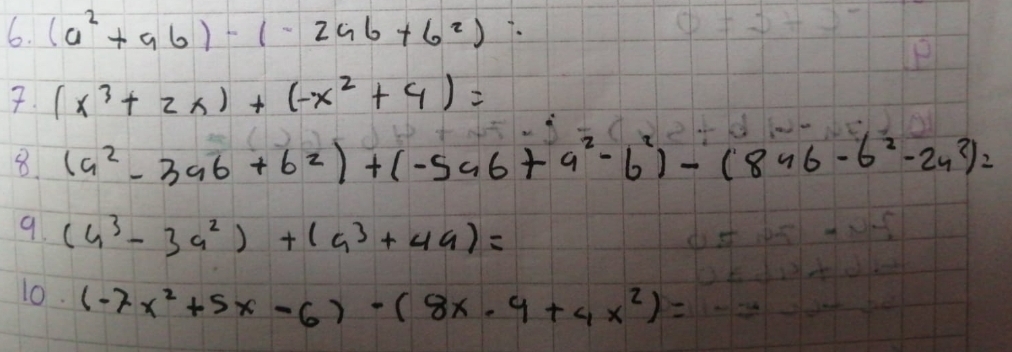 6. (a² + ab) - (- 2ab + b²) :
7. (x³ + 2x) + (-x² + 4) =
8. (a² - 3ab + b²) + (-5ab + a² - b²) - (8ab - b² - 2a²) =
9. (a³ - 3a²) + (a³ + 4a) =
10. (-7x² + 5x - 6) - (8x - 9 + 4x²) =